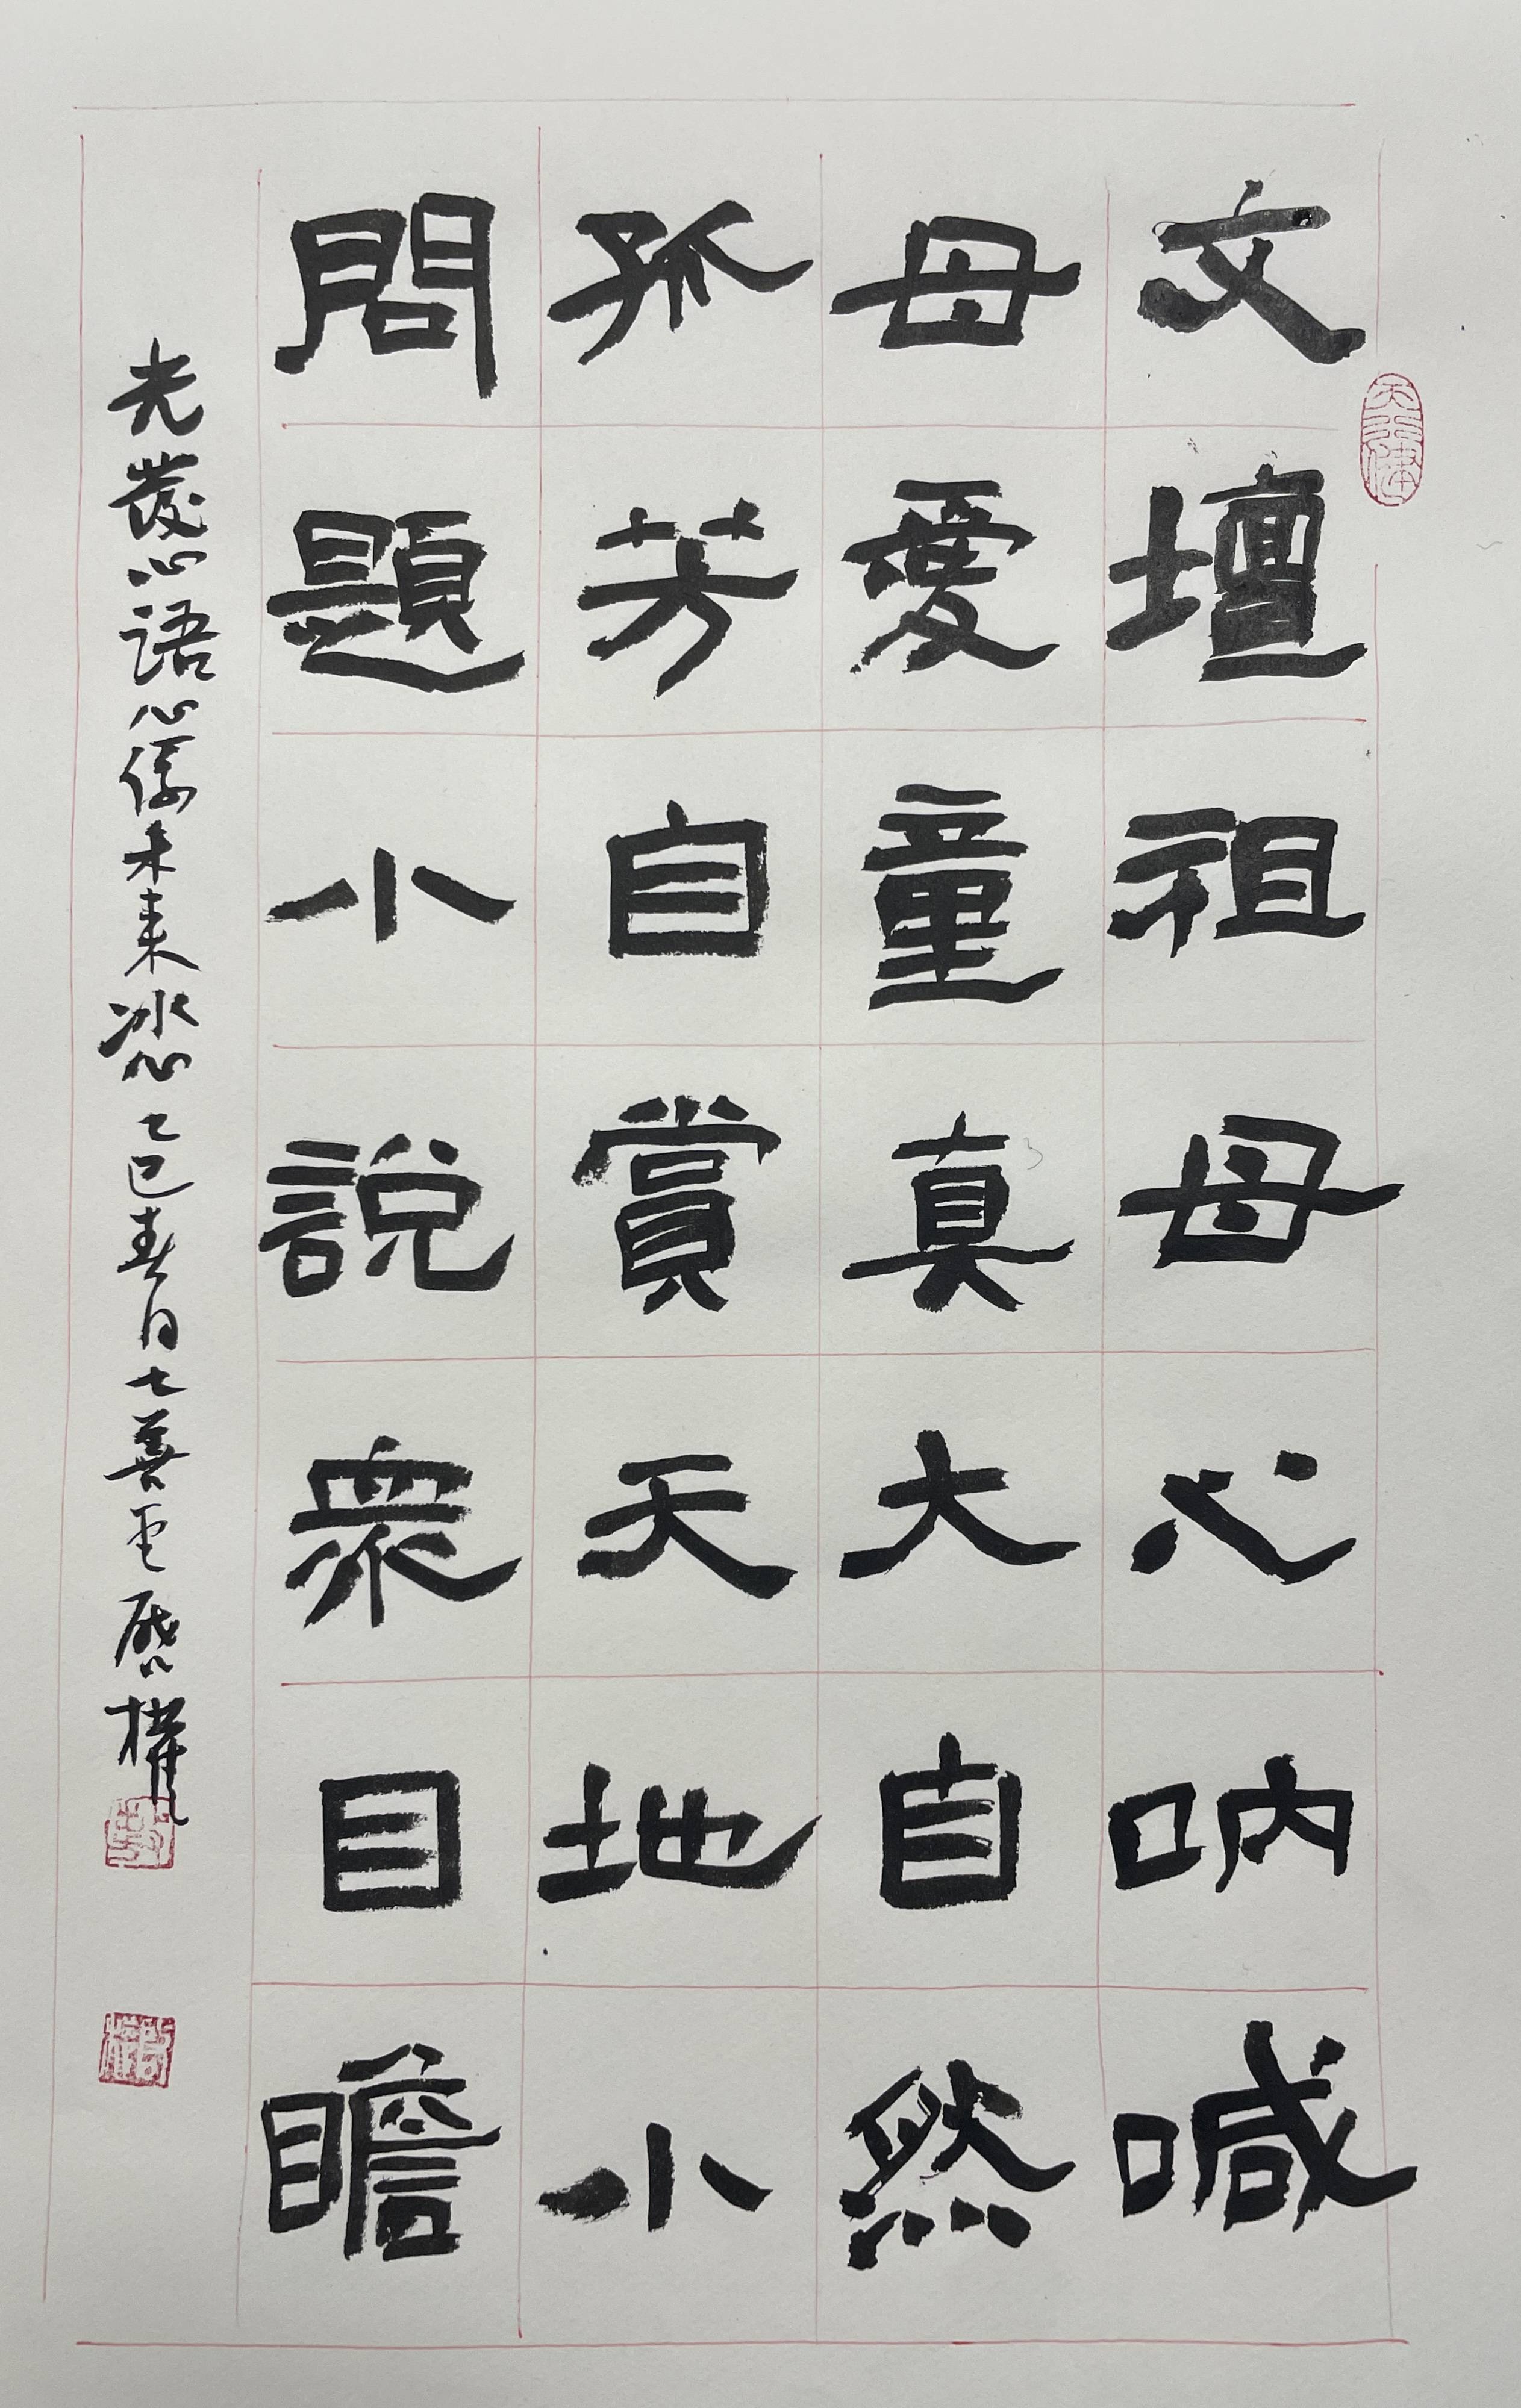 文壇祖母心吶喊
母愛童真大自然
孤芳自賞天地小
問題小說衆目瞻
光發心語心係未來冰心乙巳春日七善堂啓權